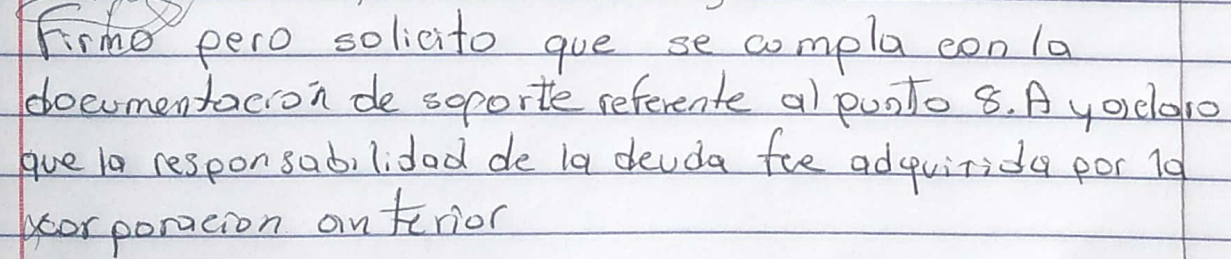 Firmo pero solicito que se compla con la
documentación de soporte referente al punto 8. A y aclaro
que la responsabilidad de la deuda fue adquirida por la
corporacion anterior